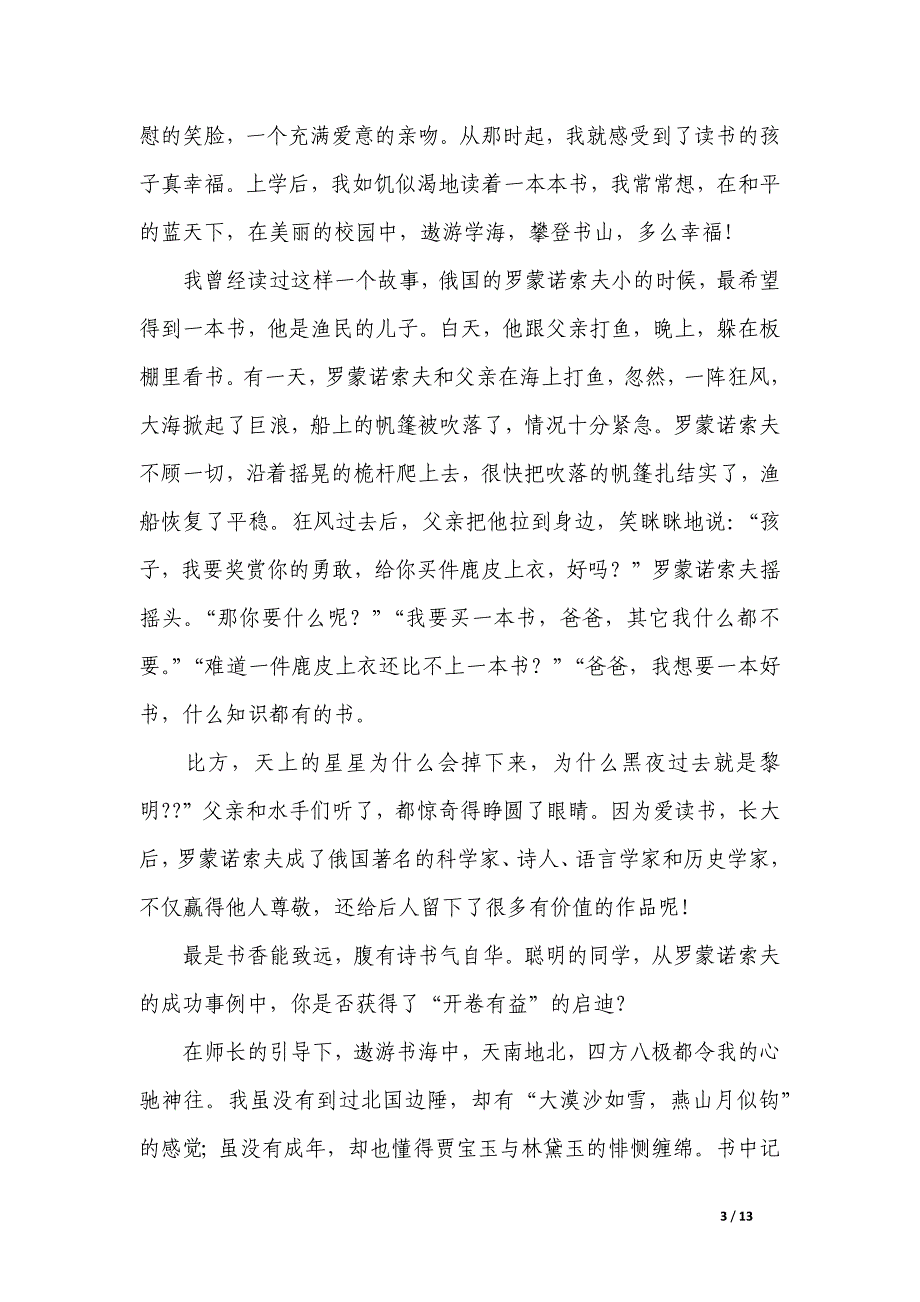 慰的笑脸，一个充满爱意的亲吻。从那时起，我就感受到了读书的孩
子真幸福。上学后，我如饥似渴地读着一本本书，我常常想，在和平
的蓝天下，在美丽的校园中，遨游学海，攀登书山，多么幸福！
我曾经读过这样一个故事，俄国的罗蒙诺索夫小的时候，最希望
得到一本书，他是渔民的儿子。白天，他跟父亲打鱼，晚上，躲在板
棚里看书。有一天，罗蒙诺索夫和父亲在海上打鱼，忽然，一阵狂风，
大海掀起了巨浪，船上的帆篷被吹落了，情况十分紧急。罗蒙诺索夫
不顾一切，沿着摇晃的桅杆爬上去，很快把吹落的帆篷扎结实了，渔
船恢复了平稳。狂风过去后，父亲把他拉到身边，笑眯眯地说：“孩
子，我要奖赏你的勇敢，给你买件鹿皮上衣，好吗？”罗蒙诺索夫摇
摇头。“那你要什么呢？”“我要买一本书，爸爸，其它我什么都不
要。”“难道一件鹿皮上衣还比不上一本书？”“爸爸，我想要一本好
书，什么知识都有的书。
比方，天上的星星为什么会掉下来，为什么黑夜过去就是黎
明??”父亲和水手们听了，都惊奇得睁圆了眼睛。因为爱读书，长大
后，罗蒙诺索夫成了俄国著名的科学家、诗人、语言学家和历史学家，
不仅赢得他人尊敬，还给后人留下了很多有价值的作品呢！
最是书香能致远，腹有诗书气自华。聪明的同学，从罗蒙诺索夫
的成功事例中，你是否获得了“开卷有益”的启迪？
在师长的引导下，遨游书海中，天南地北，四方八极都令我的心
驰神往。我虽没有到过北国边陲，却有“大漠沙如雪，燕山月似钩”
的感觉；虽没有成年，却也懂得贾宝玉与林黛玉的悱恻缠绵。书中记
3 / 13